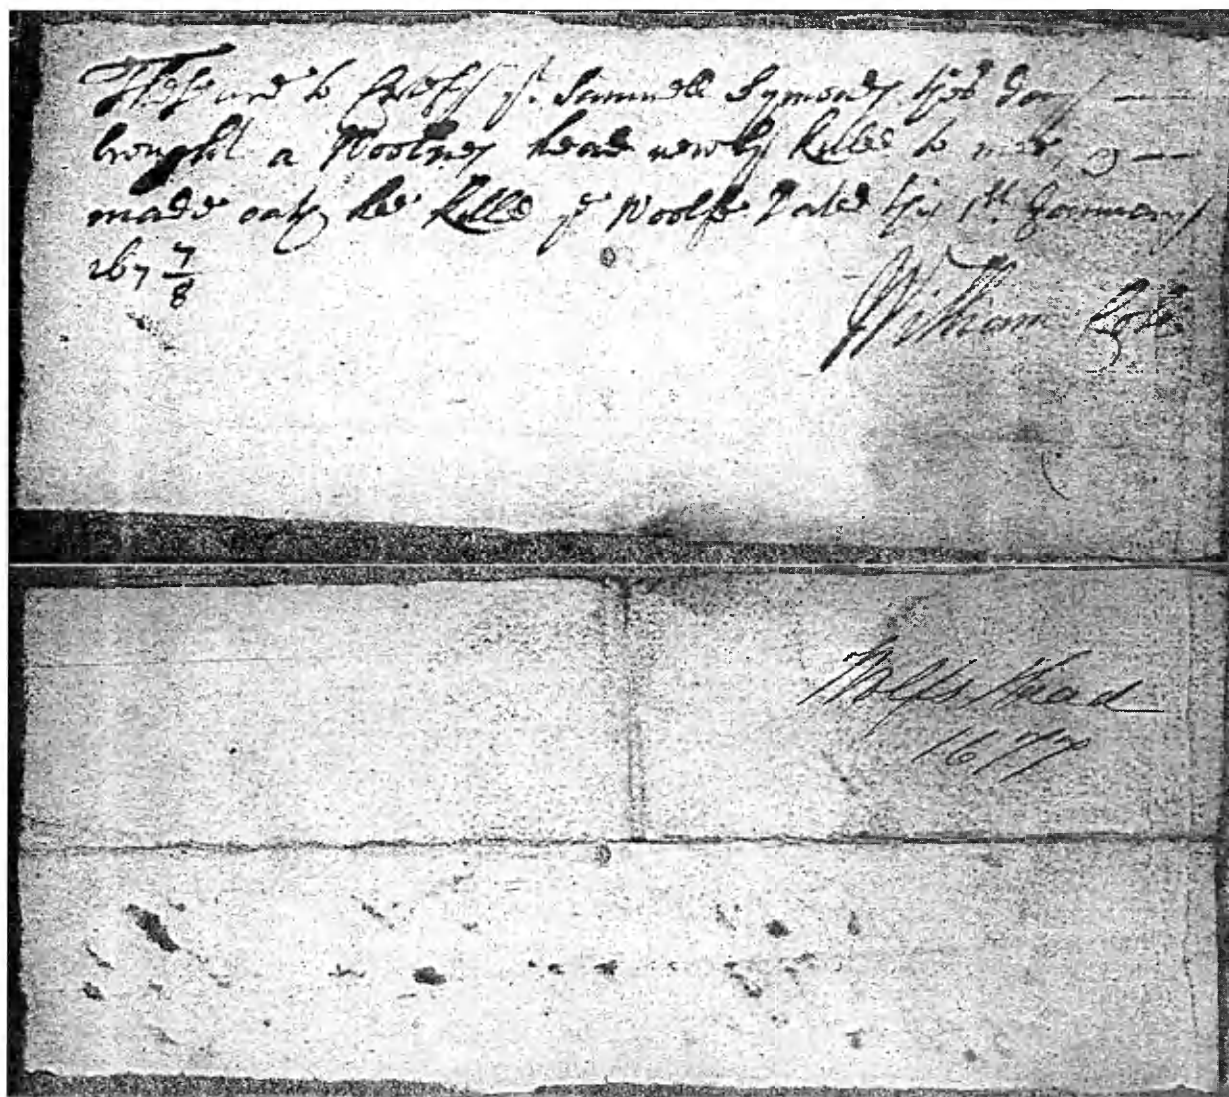 These are to Certify yt. Samuell Symonds this day
brought a Woolves head newly killed to mee, &
made oath hee killed ye Woolfe Dated this 1th January
167 7/8
William
Wolfs Head
1677